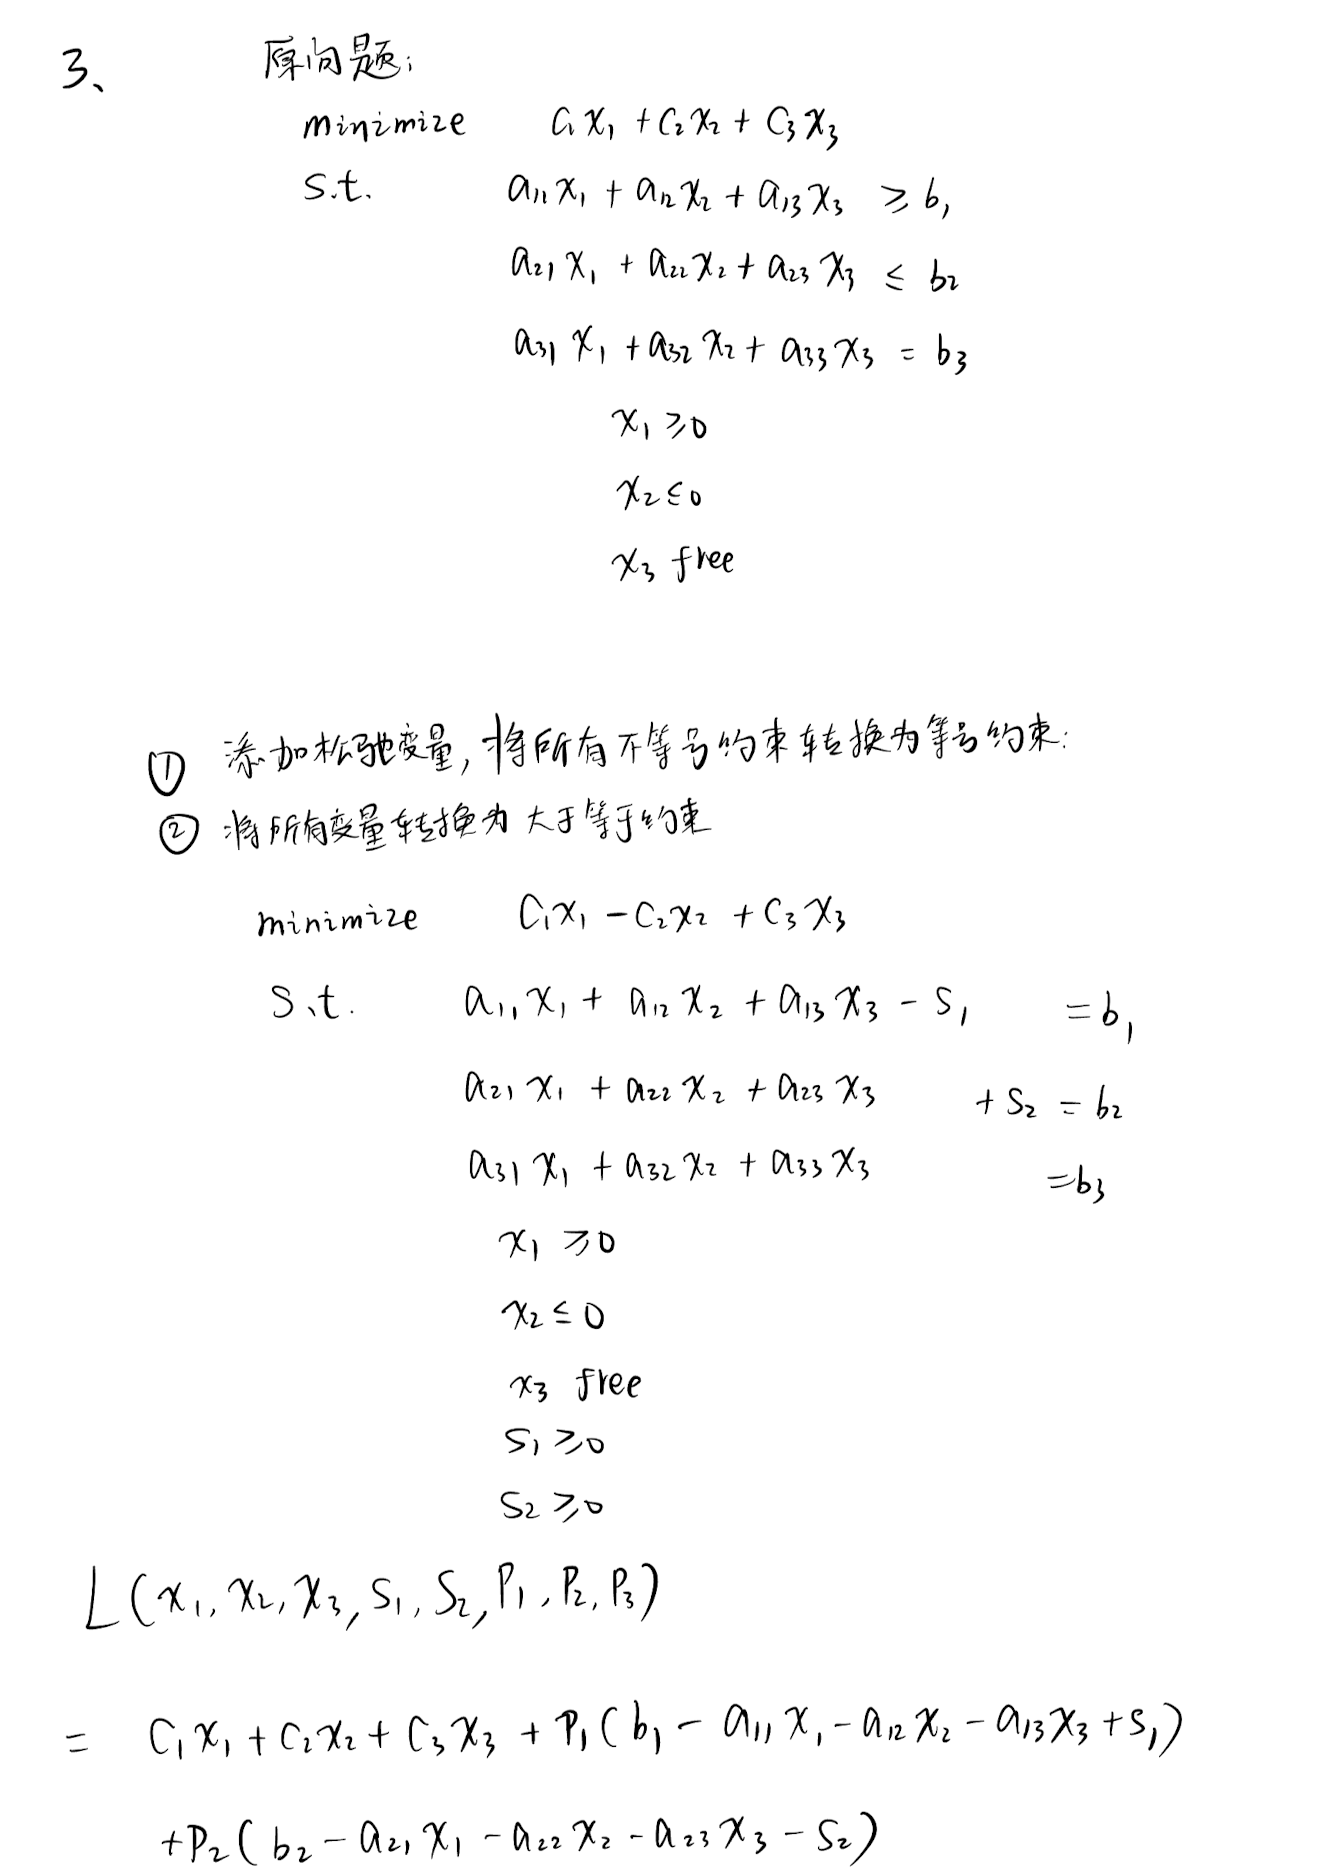 3、 原问题:
minimize C₁x₁ + C₂x₂ + C₃x₃
s.t. a₁₁x₁ + a₁₂x₂ + a₁₃x₃ ≥ b₁
a₂₁x₁ + a₂₂x₂ + a₂₃x₃ ≤ b₂
a₃₁x₁ + a₃₂x₂ + a₃₃x₃ = b₃
x₁ ≥ 0
x₂ ≤ 0
x₃ free
① 添加松驰变量, 将所有不等号约束转换为等号约束:
② 将所有变量转换为大于等于约束
minimize C₁x₁ - C₂x₂ + C₃x₃
s.t. a₁₁x₁ + a₁₂x₂ + a₁₃x₃ - S₁ = b₁
a₂₁x₁ + a₂₂x₂ + a₂₃x₃ + S₂ = b₂
a₃₁x₁ + a₃₂x₂ + a₃₃x₃ = b₃
x₁ ≥ 0
x₂ ≤ 0
x₃ free
S₁ ≥ 0
S₂ ≥ 0
L(x₁, x₂, x₃, S₁, S₂, P₁, P₂, P₃)
= C₁x₁ + C₂x₂ + C₃x₃ + P₁(b₁ - a₁₁x₁ - a₁₂x₂ - a₁₃x₃ + S₁)
+ P₂(b₂ - a₂₁x₁ - a₂₂x₂ - a₂₃x₃ - S₂)